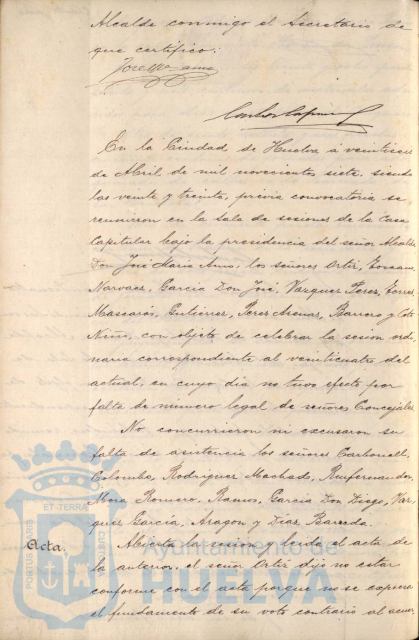 Alcalde conmigo el Secretario de
que certifico:
José Mª Amo
En la Ciudad de Huelva á veintiseis
de Abril de mil novecientos siete, siendo
las veinte y treinta, previa convocatoria se
reunieron en la sala de sesiones de la Casa
Capitular bajo la presidencia del señor Alcalde
Don José María Amo, los señores Ortiz, Toscano,
Narvaez, Garcia Don José, Vazquez Perez, Torres,
Mascarós, Gutierrez, Perez Arenas, Barrero y Coto
Niño, con objeto de celebrar la sesion ordi
naria correspondiente al veinticuatro del
actual, en cuyo dia no tuvo efecto por
falta de número legal de señores Concejales.
No concurrieron ni excusaron su
falta de asistencia los señores Carbonell,
Colombo, Rodriguez Machado, Renfernandez,
Mora Romero, Ramos, Garcia Don Diego, Vaz
quez García, Aragon y Diaz Bareda.
Acta. Abierta la sesion y leida el acta de
la anterior, el señor Ortiz dijo no estar
conforme con el acta porque no se expresa
el fundamento de su voto contrario al acuer
PORTUS MARIS
ET TERRÆ
CUSTODIA
Ayuntamiento de
HUELVA